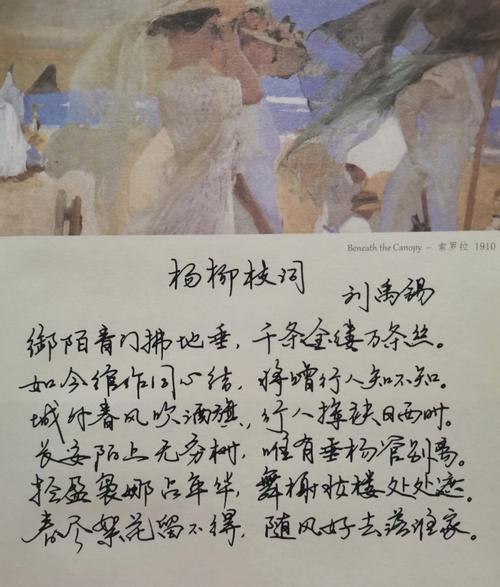 Beneath the Canopy – 索罗拉 1910
杨柳枝词
刘禹锡
御陌青门拂地垂，千条金缕万条丝。
如今绾作同心结，将赠行人知不知。
城外春风吹酒旗，行人挥袂日西时。
长安陌上无穷树，唯有垂杨管别离。
轻盈袅娜占年华，舞榭妆楼处处遮。
春尽絮花留不得，随风好去落谁家。